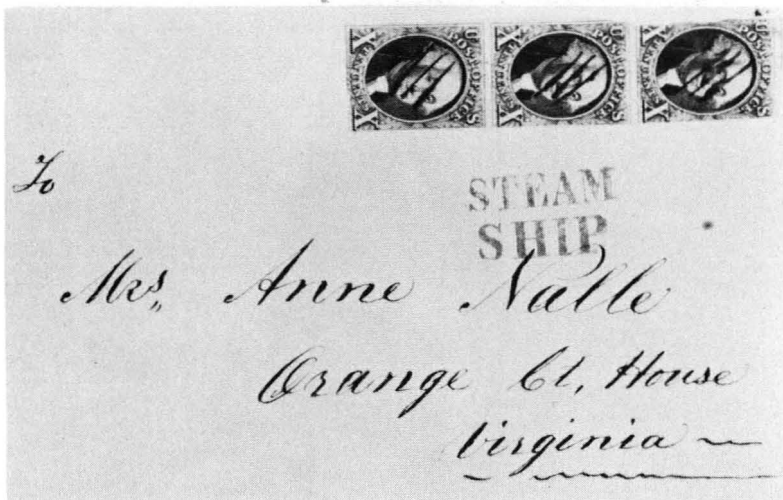 X X U POST OFFICE
X X U POST OFFICE
X X U POST OFFICE
To
STEAM
SHIP
Mrs, Anne Nalle
Orange Ct, House
Virginia